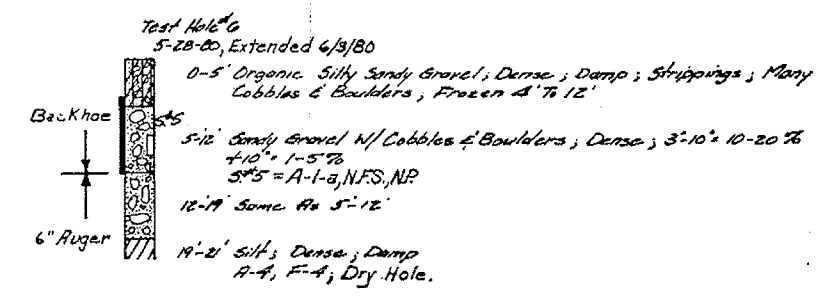 Test Hole #6
5-28-80, Extended 6/3/80
0-5' Organic Silty Sandy Gravel; Dense; Damp; Strippings; Many
Cobbles & Boulders; Frozen 4' To 12'
Backhoe
S#5
5-12' Sandy Gravel W/Cobbles & Boulders; Dense; 3"-10" = 10-20%
+10" = 1-5%
S#5 = A-1-a, N.F.S., N.P.
12-19' Same As 5'-12'
6" Auger
19'-21' Silt; Dense; Damp
A-4, F-4; Dry Hole.